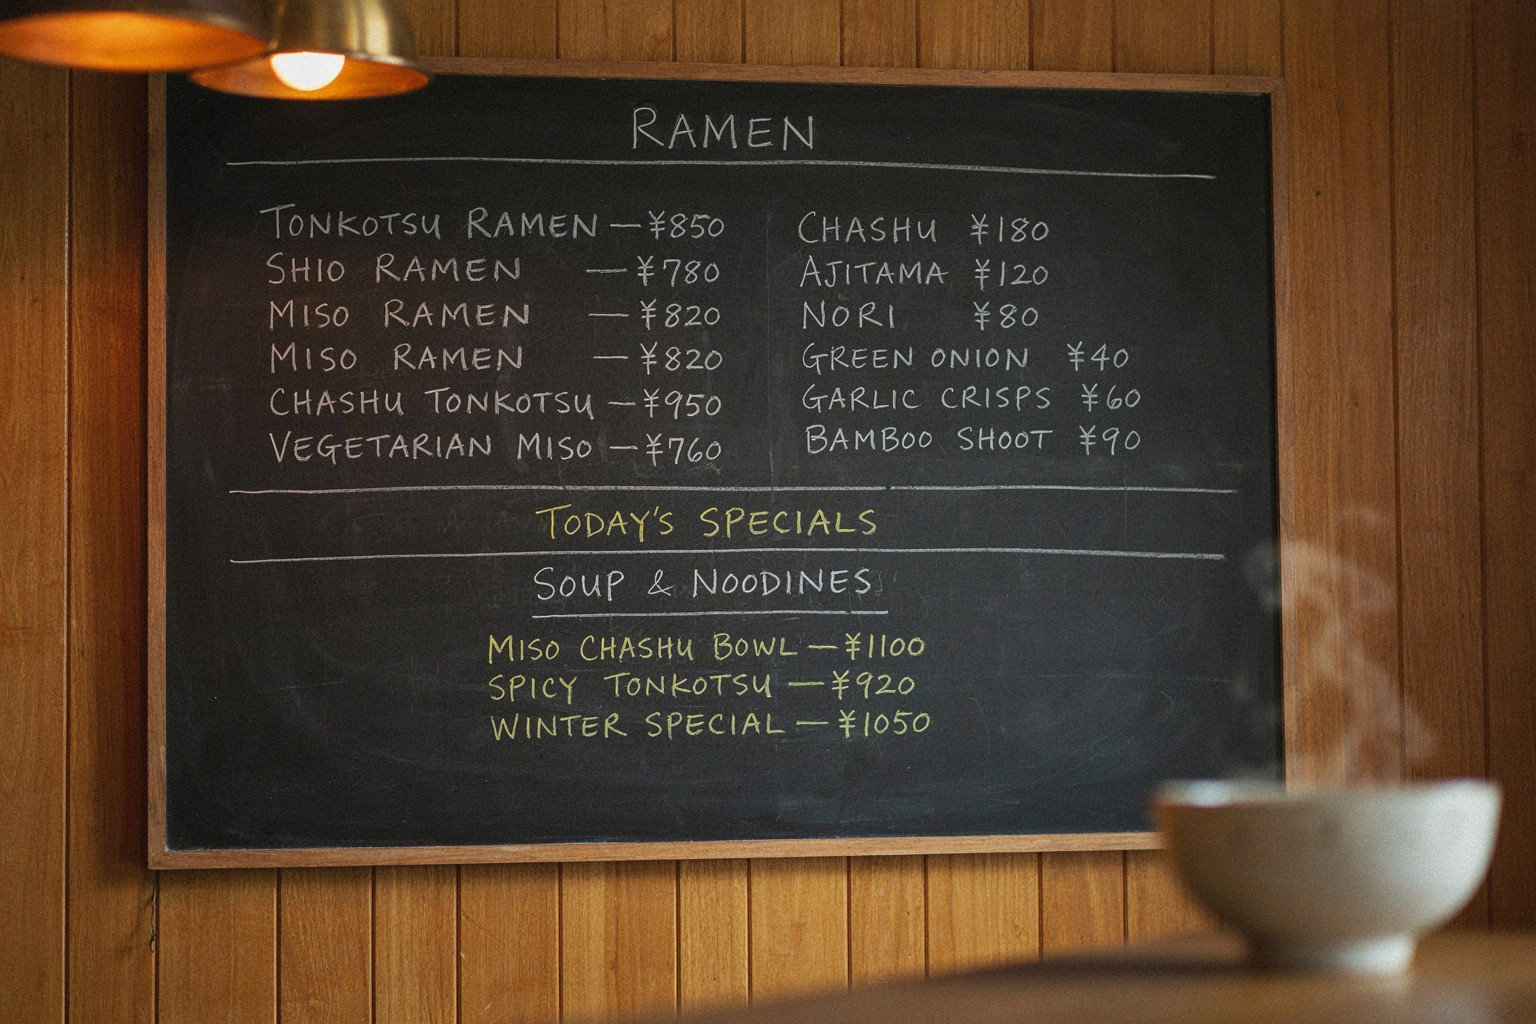 RAMEN
TONKOTSU RAMEN — ¥850
SHIO RAMEN — ¥780
MISO RAMEN — ¥820
MISO RAMEN — ¥820
CHASHU TONKOTSU — ¥950
VEGETARIAN MISO — ¥760
CHASHU ¥180
AJITAMA ¥120
NORI ¥80
GREEN ONION ¥40
GARLIC CRISPS ¥60
BAMBOO SHOOT ¥90
TODAY'S SPECIALS
SOUP & NOODINES
MISO CHASHU BOWL — ¥1100
SPICY TONKOTSU — ¥920
WINTER SPECIAL — ¥1050